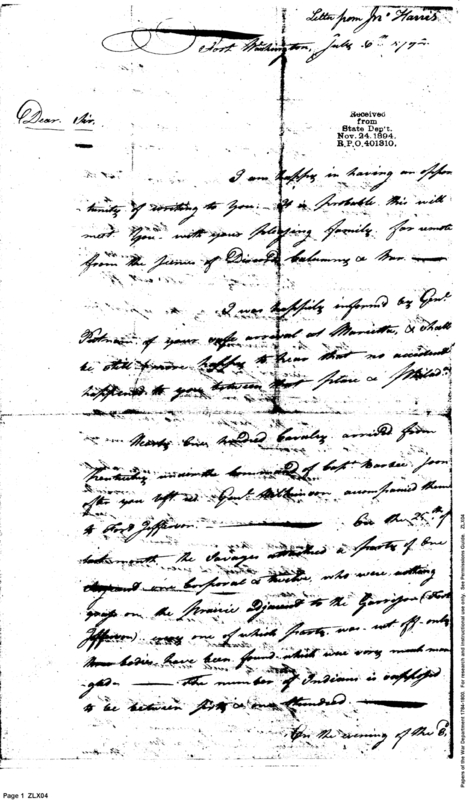 Letter from Jnº Harris
Fort Washington, July 6th 1792
Dear Sir.
Received
from
State Dep't.
Nov. 24. 1894.
R.P.O. 401310.
I am happy in having an oppor
tunity of writing to You. It is probable this will
meet You with your pleasing family far remote
from the scenes of Discord Calumny & War.
I was happily informed by Genl.
Putnam of your safe arrival at Marietta, & shall
be still more happy to hear that no accident
happened to you between that place & Philada.
Nearly One hundred Cavalry arrived from
Kentucky under the Command of Capt. soon
after you left us. Genl. Wilkinson accompanied them
to Fort Jefferson. On the 25th of
last month the Savages attacked a party of One
Sergeant one Corporal & twelve, who were
grass on the Prairie adjacent to the Garrison (Fort
Jefferson) every one of which party was cut off. only
bodies have been found which were very much man
gled. the number of Indians is supposed
to be between sixty & one hundred
On the evening of the
Page 1 ZLX04
Papers of the War Department 1784-1800. For research and instructional use only. See Permissions Guide. ZLX04